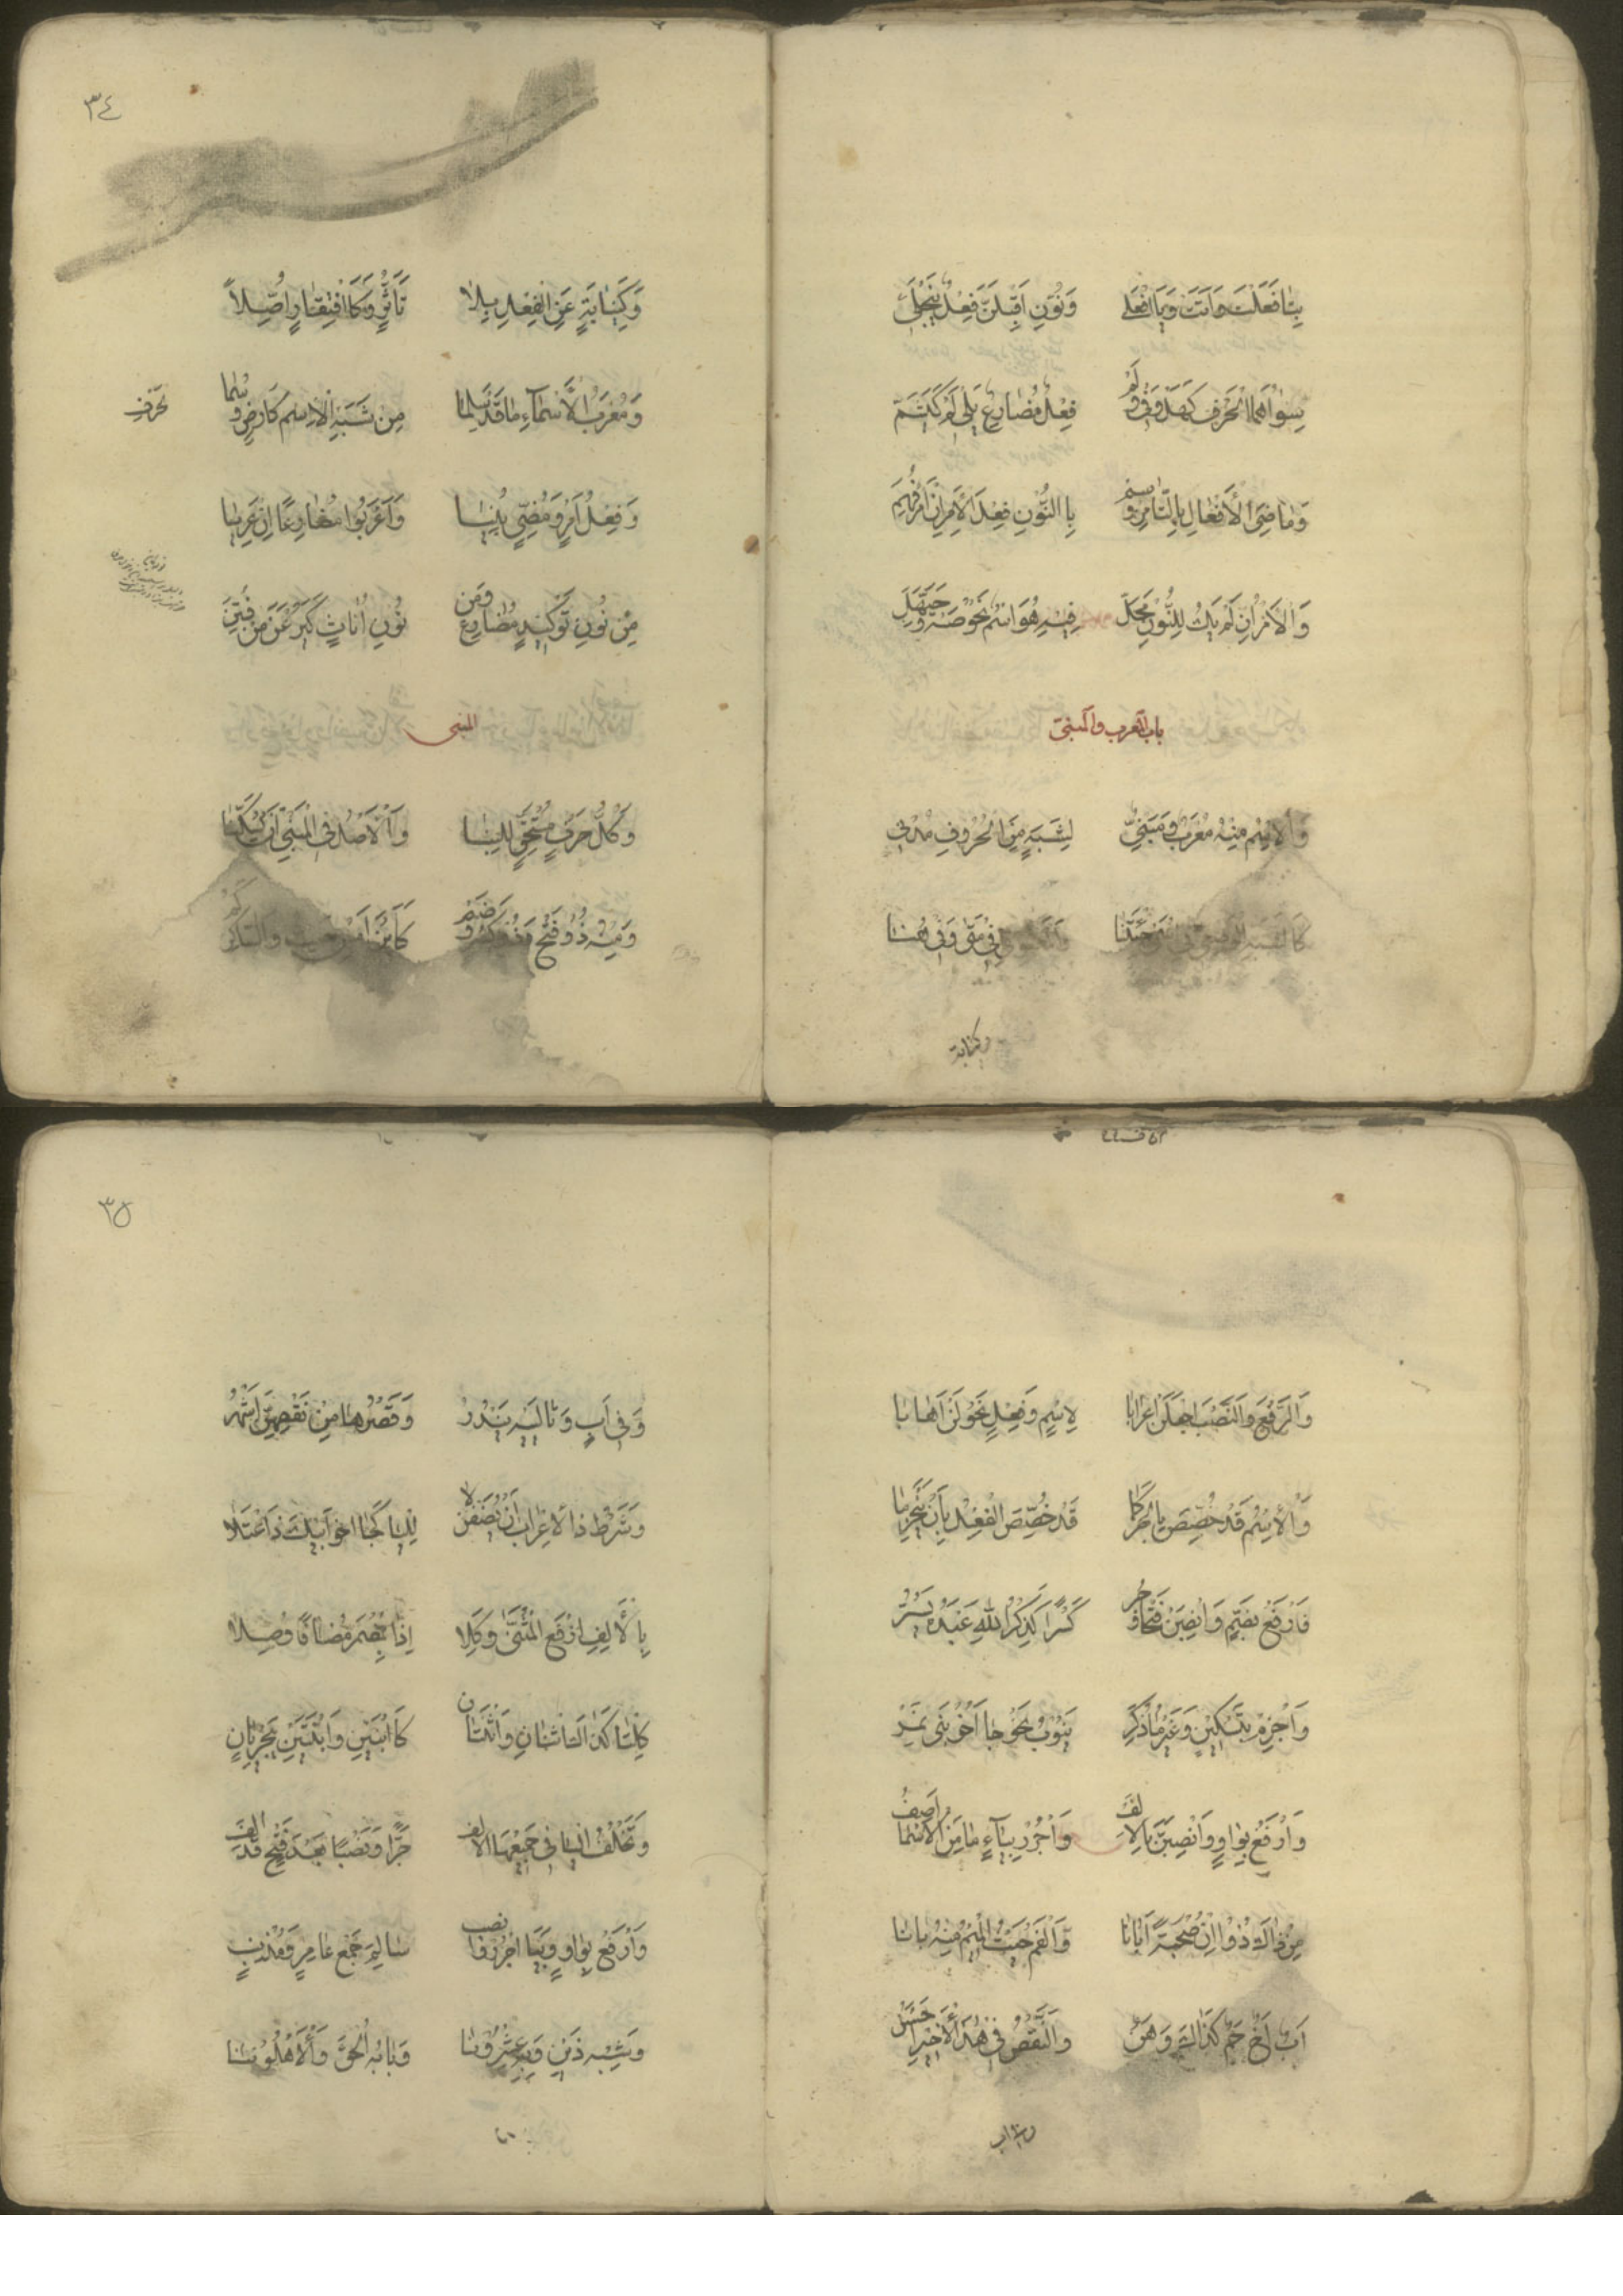 بِتَا فَعَلْتَ وَاَتَتْ وَيَا افْعَلِى وَنُونِ اَقْبِلَنَّ فِعْلٌ يَنْجَلِى
سِوَاهُمَا الْحَرْفُ كَهَلْ وَفِى وَلَمْ فِعْلٌ مُضَارِعٌ يَلِى لَمْ كَيَشَمْ
وَمَاضِىَ الْاَفْعَالِ بِالتَّا مِزْ وَسِمْ بِالنُّونِ فِعْلَ الْاَمْرِ اِنْ اَمْرٌ فُهِمَ
وَالْاَمْرُ اِنْ لَمْ يَكُ لِلنُّونِ مَحَلْ فِيهِ هُوَ اسْمٌ نَحْوُ صَهْ وَحَيَّهَلْ
باب المعرب والمبنى
وَالْاِسْمُ مِنْهُ مُعْرَبٌ وَمَبْنِىْ لِشَبَهٍ مِنَ الْحُرُوفِ مُدْنِى
كَالشَّبَهِ الْوَضْعِىِّ فِى اسْمَىْ جِئْتَنَا فِى مَتٰى وَفِى هُنَا
وكنابة
٣٤
وَكَنِيَابَةٍ عَنِ الْفِعْلِ بِلَا تَأَثُّرٍ وَكَافْتِقَارٍ اُصِّلَاً
وَمُعْرَبُ الْاَسْمَآءِ مَا قَدْ سَلِمَا مِنْ شَبَهِ الْاِسْمِ كَارْضٍ وَسُمَا
لحرف
وَفِعْلُ اَمْرٍ وَمُضِىٍّ بُنِيَا وَاَعْرَبُوا مُضَارِعًا اِنْ عَرِيَا
مِنْ نُونِ تَوْكِيدٍ مُضَارِعٍ وَمِنْ نُونِ اُنَاثٍ كَيَرُعْنَ مَنْ فُتِنَ
المبنى
وَكُلُّ حَرْفٍ مُسْتَحِقٌّ لِلْبِنَا وَالْاَصْلُ فِى الْمَبْنِىِّ اَنْ يُسَكَّنَا
وَمِنْهُ ذُو فَتْحٍ وَذُو كَسْرٍ وَضَمْ كَاَيْنَ اَمْسِ حَيْثُ وَالسَّاكِنُ كَمْ
وَالرَّفْعَ وَالنَّصْبَ اجْعَلَنْ اِعْرَابَا لِاسْمٍ وَفِعْلٍ نَحْوُ لَنْ اَهَابَا
وَالْاِسْمُ قَدْ خُصِّصَ بِالْجَرِّ كَمَا قَدْ خُصِّصَ الْفِعْلُ بِاَنْ يَنْجَزِمَا
فَارْفَعْ بِضَمٍّ وَانْصِبَنْ فَتْحًا وَجُرْ كَسْرًا كَذِكْرُ اللهِ عَبْدَهُ يَسُرْ
وَاجْزِمْ بِتَسْكِينٍ وَغَيْرُ مَا ذُكِرَ يَنُوبُ نَحْوُ جَا اَخُو بَنِى نَمِرْ
وَارْفَعْ بِوَاوٍ وَانْصِبَنَّ بِالْاَلِفْ وَاجْرُرْ بِيَآءٍ مَا مِنَ الْاَسْمَا اَصِفْ
مِنْ ذَاكَ ذُو اِنْ صُحْبَةً اَبَانَا وَالْفَمُ حَيْثُ الْمِيمُ مِنْهُ بَانَا
اَبٌ اَخٌ حَمٌ كَذَاكَ وَهَنُ وَالنَّقْصُ فِى هٰذَا الْاَخِيرِ اَحْسَنُ
وفى اب
٣٥
وَفِى اَبٍ وَتَالِيَيْهِ يَنْدُرُ وَقَصْرُهَا مِنْ نَقْصِهِنَّ اَشْهَرُ
وَشَرْطُ ذَا الْاِعْرَابِ اَنْ يُضَفْنَ لَا لِلْيَا كَجَا اخُو اَبِيكَ ذَا اعْتِلَا
بِالْاَلِفِ ارْفَعِ الْمُثَنَّى وَكِلَا اِذَا بِمُضْمَرٍ مُضَافًا وُصِلَا
كِلْتَا كَذَا اثْنَانِ وَاثْنَتَانِ كَابْنَيْنِ وَابْنَتَيْنِ يَجْرِيَانِ
وَتَخْلُفُ الْيَا فِى جَمِيعِهَا الْاَلِفْ جَرًّا وَنَصْبًا بَعْدَ فَتْحٍ قَدْ اُلِفَ
وَارْفَعْ بِوَاوٍ وَبِيَا اجْرُرْ وَانْصِبِ سَالِمَ جَمْعِ عَامِرٍ وَمُذْنِبٍ
وَشِبْهِ ذَيْنِ وَبِهِ عِشْرُونَا وَبَابُهُ اُلْحِقَ وَالْاَهْلُونَا